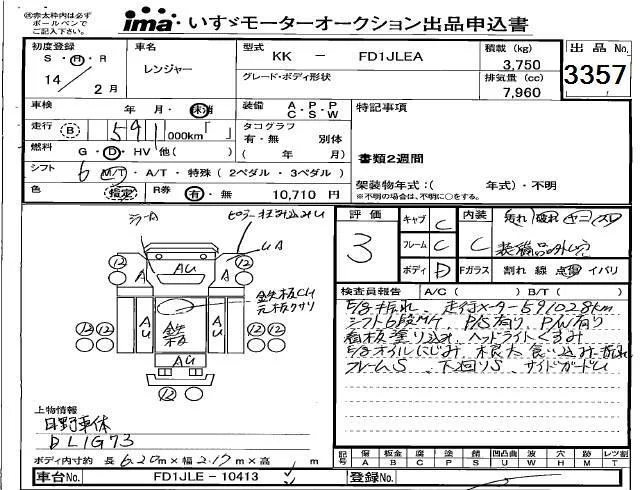 ㊟赤太枠内は必ず
ボールペンで
ご記入下さい。
ima いすゞモーターオークション出品申込書
初度登録 車名 型式 KK - FD1JLEA 積載 (kg) 3,750 出品No.
S・H・R レンジャー グレード・ボディ形状 排気量 (cc) 3357
14年2月 7,960
車検 年 月・抹消 装備 A・P・P 特記事項
C S W
走行 B 591 000km「 」 タコグラフ
有・無 別体
燃料 G・D・HV 他( ) ( 年 月) 書類2週間
シフト 6 M/T・A/T・特殊(2ペダル・3ペダル)
架装物年式:( 年式)・不明
色 指定 R券 有・無 10,710 円 ※不明の場合は、不明に○をする。
評価 キャブ C 内装 汚れ 破れ ヤニ スレ
3 フレーム C C 装備品外し穴
ボディ D Fガラス 割れ 線 点傷 イバリ
検査員報告 A/C( ) B/T( )
E/g折れ 走行メーター591028km
シフト6段MT P/S有り P/W有り
荷板塗り込み ヘッドライトくすみ
E/gオイルにじみ 根太食い込み
フレームS 下廻りS サイドガードU
ミラーA
UA
⑫ ⑫
AU
A A
鉄板CU
元板クサリ
AU AU 鉄板 AU AU
⑫ ⑫
AU
⑫
上物情報
日野車体
DL1G73
ボディ内寸約 長 6.20m×幅 2.17m×高 m
記号 傷 A 板金 B 腐 C 塗 P 錆 S 凹凸曲 U 波 W 穴 H 欠 M 木 T レツ割
車台No. FD1JLE - 10413 登録No.